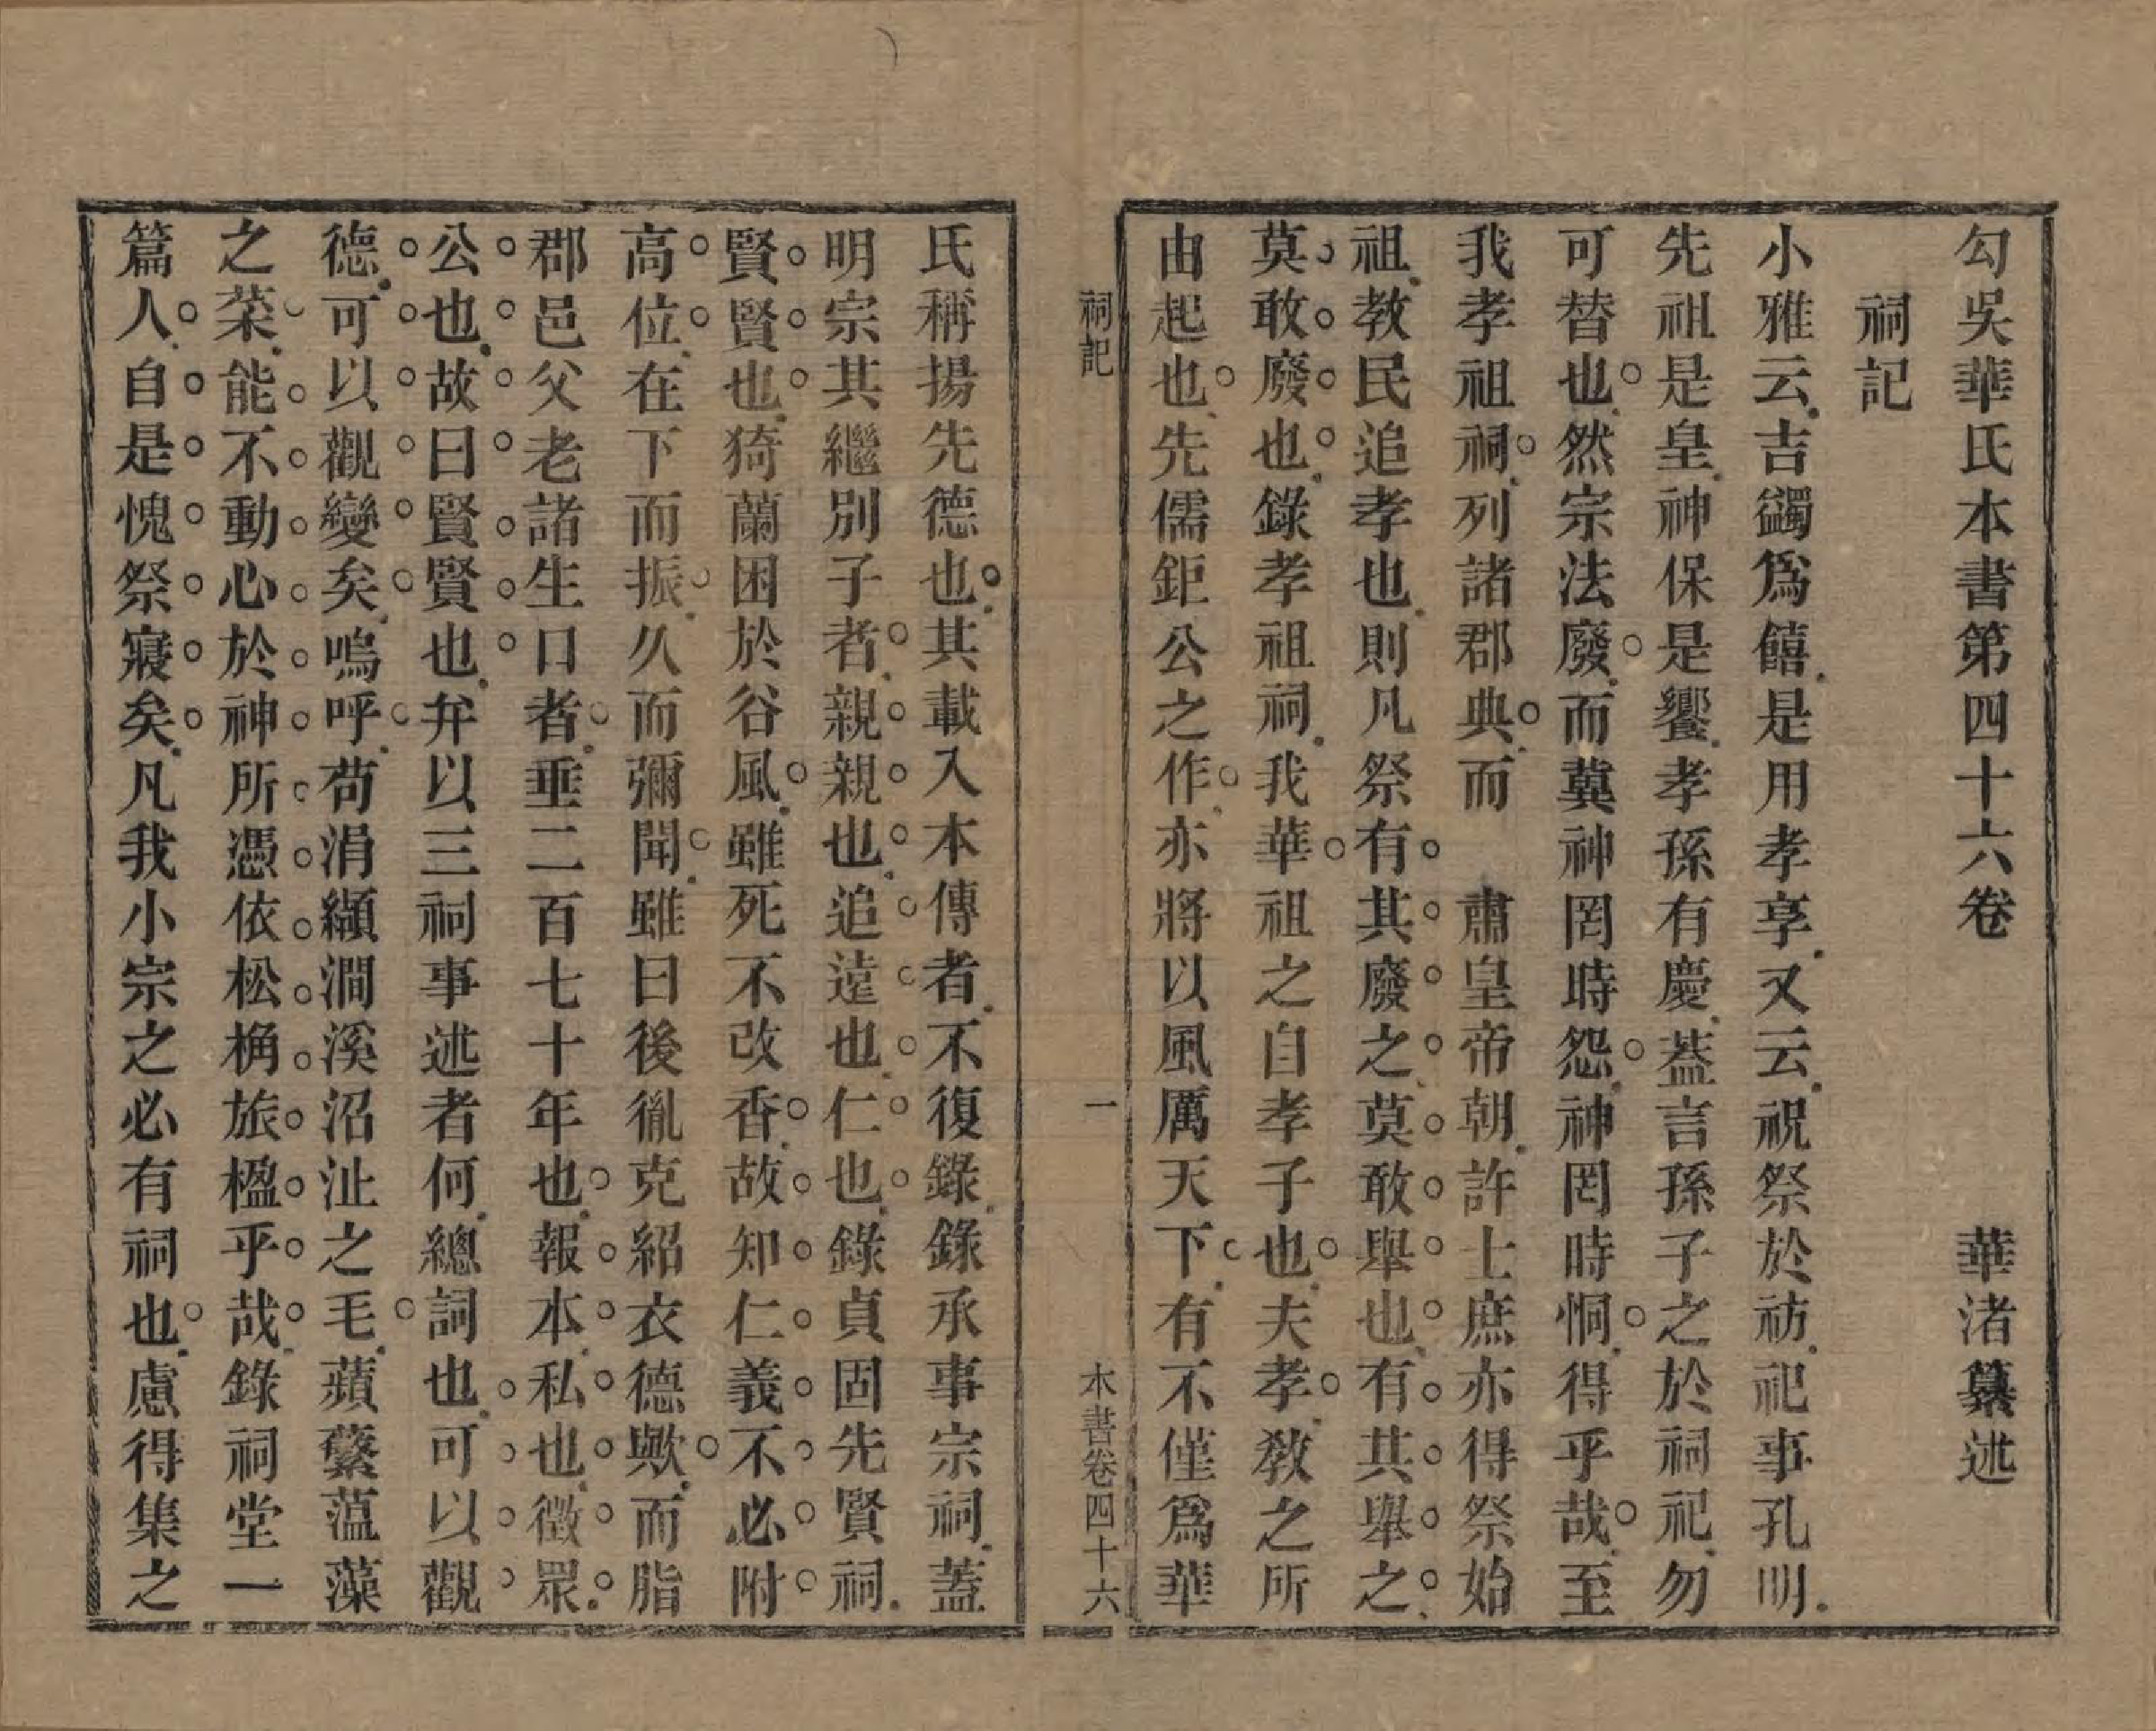 勾吳華氏本書第四十六卷　華渚纂述
祠記
小雅云吉蠲爲饎是用孝享又云祝祭於祊祀事孔明
先祖是皇神保是饗孝孫有慶葢言孫子之於祠祀勿
可替也然宗法廢而冀神罔時怨神罔時恫得乎哉至
我孝祖祠列諸郡典而　肅皇帝朝許士庶亦得祭始
祖教民追孝也則凡祭有其廢之莫敢舉也有其舉之
莫敢廢也錄孝祖祠我華祖之自孝子也夫孝敎之所
由起也先儒鉅公之作亦將以風厲天下有不僅爲華
祠記　一　本書卷四十六
氏稱揚先德也其載入本傳者不復錄錄承事宗祠蓋
明宗其繼別子者親親也追遠也仁也錄貞固先賢祠
賢賢也猗蘭困於谷風雖死不改香故知仁義不必附
高位在下而振久而彌聞雖曰後胤克紹衣德歟而脂
郡邑父老諸生口者垂二百七十年也報本私也徵眾
公也故曰賢賢也弁以三祠事述者何總詞也可以觀
德可以觀變矣嗚呼苟涓纇澗溪沼沚之毛蘋蘩薀藻
之菜能不動心於神所憑依松桷旅楹乎哉錄祠堂一
篇人自是愧祭寢矣凡我小宗之必有祠也慮得集之